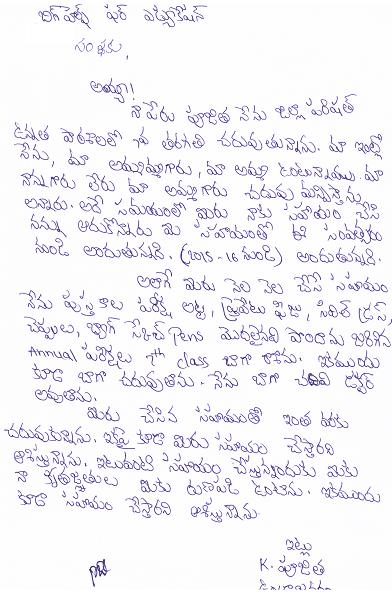 బిగ్ హెల్ప్ ఫర్ ఎడ్యుకేషన్
సంస్థకు,
అయ్యా!
నా పేరు పూజిత నేను జిల్లా పరిషత్
ఉన్నత పాఠశాలలో 7వ తరగతి చదువుతున్నాను. మా ఇంట్లో
నేను, మా అమ్మమ్మగారు, మా అమ్మ ఉంటున్నాము. మా
నాన్నగారు లేరు మా అమ్మగారు చదువు మాన్పిస్తాను
అన్నారు. అదే సమయంలో మీరు నాకు సహాయం చేసి
నన్ను ఆదుకొన్నారు మీ సహాయంతో ఈ సంవత్సరం
నుండి అందుతున్నది. (2015-16 నుండి) అందుతున్నది.
అలాగే మీరు నెల నెల చేసే సహాయం
నేను పుస్తకాలు పరీక్ష అట్ట, ప్రైవేటు ఫీజు, సివిల్ డ్రస్,
చెప్పులు, బ్యాగ్ స్కెచ్ Pens మొదలైనవి పొందాను జరిగిన
Annual పరీక్షలు 7th class బాగా రాశాను. ఇకముందు
కూడా బాగా చదువుతాను. నేను బాగా చదివి డాక్టర్
అవుతాను.
మీరు చేసిన సహాయంతో ఇంత వరకు
చదువుకున్నాను. ఇకపై కూడా మీరు సహాయం చేస్తారని
ఆశిస్తున్నాను. ఇటువంటి సహాయం చేస్తున్నందుకు మీకు
నా కృతజ్ఞతలు మీకు రుణపడి ఉంటాను. ఇకముందు
కూడా సహాయం చేస్తారని ఆశిస్తున్నాను.
ఇట్లు
K. పూజిత